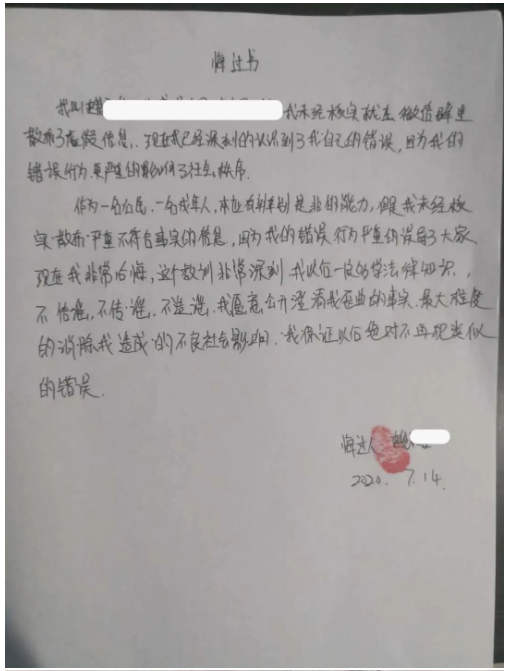 悔过书
我叫赵 我未经核实就在微信群里
散布了虚假信息,现在我已经深刻的认识到了我自己的错误,因为我的
错误行为,严重的影响了社会秩序.
作为一名公民.一名成年人,本应有辨别是非的能力,但我未经核
实.散布严重不符合事实的信息,因为我的错误行为严重的误导了大家
现在我非常后悔,这个教训非常深刻.我以后一定好好学法律知识,
不信谣,不传谣,不造谣.我愿意公开澄清我歪曲的事实.最大程度
的消除我造成的不良社会影响.我保证以后绝对不再犯类似
的错误.
悔过人
2020. 7.14.